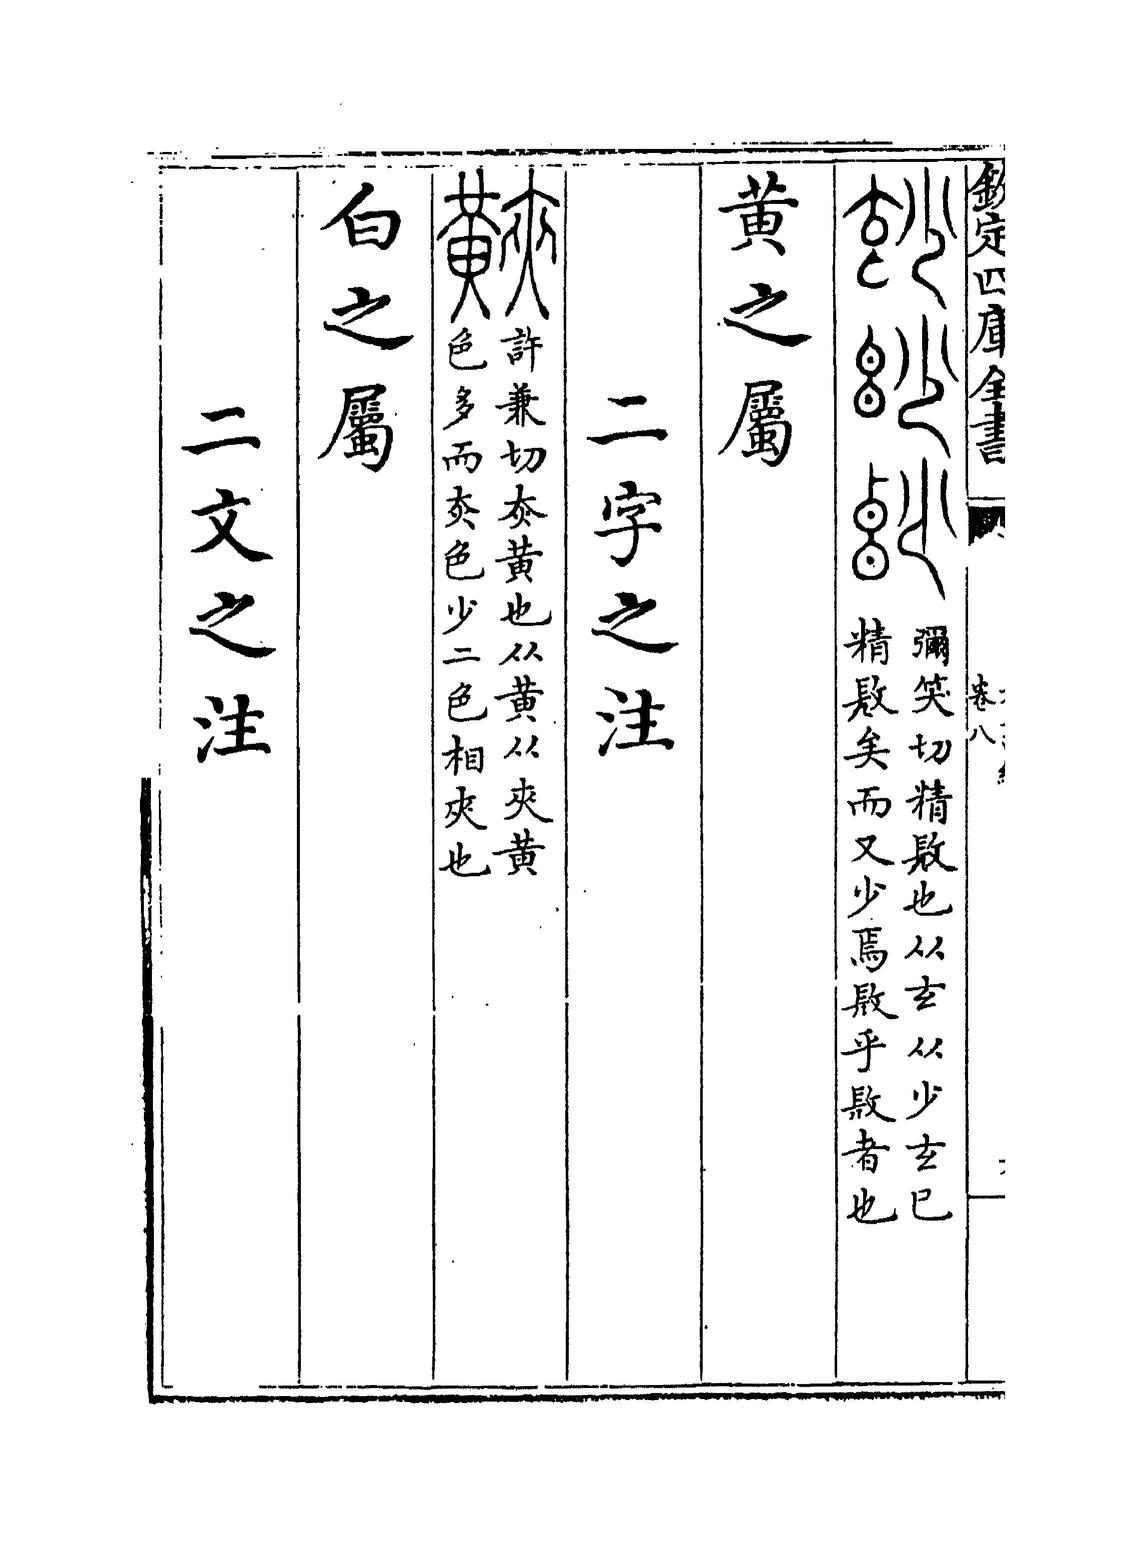 欽定四庫全書
卷八
玅玅玅
彌笑切精𢼸也从玄从少玄已
精𢼸矣而又少焉𢼸乎𢼸者也
黄之屬
二字之注
䵌
許兼切赤黄也从黄从夾黄
色多而赤色少二色相夾也
白之屬
二文之注